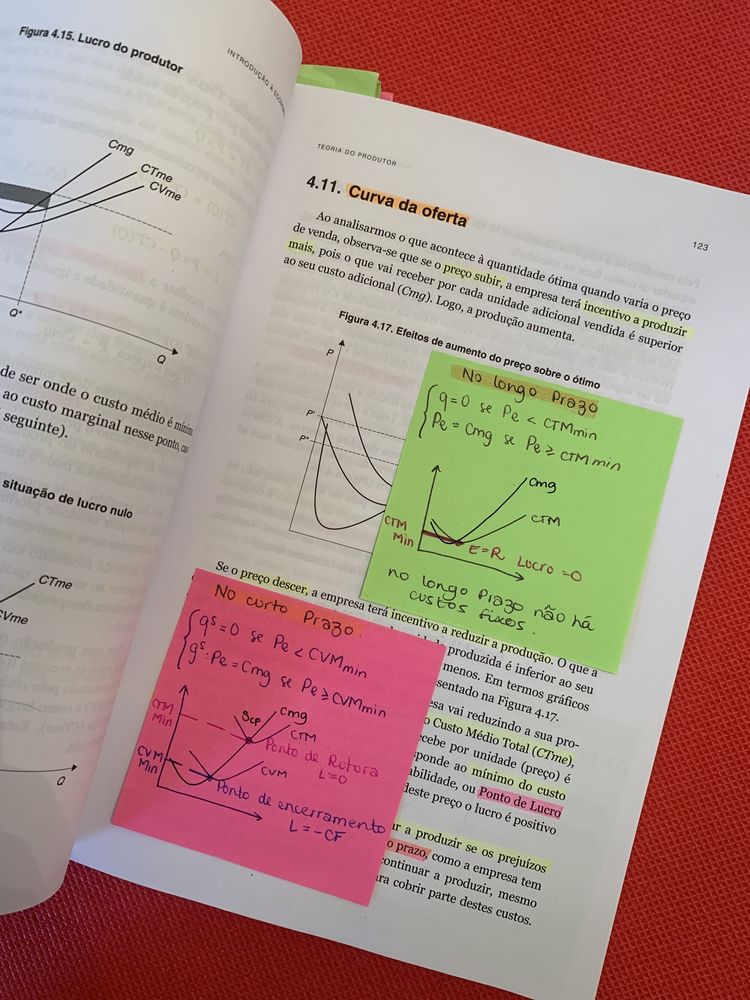 Figura 4.15. Lucro do produtor
INTRODUÇÃO À
Cmg
CTme
CVme
Q*
Q
de ser onde o custo médio é
ao custo marginal nesse ponto,
seguinte).
situação de lucro nulo
CTme
CVme
Q
TEORIA DO PRODUTOR
123
4.11. Curva da oferta
Ao analisarmos o que acontece à quantidade ótima quando varia o preço
de venda, observa-se que se o preço subir, a empresa terá incentivo a produzir
mais, pois o que vai receber por cada unidade adicional vendida é superior
ao seu custo adicional (Cmg). Logo, a produção aumenta.
Figura 4.17. Efeitos de aumento do preço sobre o ótimo
P
P'
P*
No longo Prazo
q=0 se Pe < CTMmin
Pe = Cmg se Pe ≥ CTMmin
Cmg
CTM
CTM
Min
E=R Lucro=0
no longo Prazo não há
custos fixos.
Se o preço descer, a empresa terá incentivo a reduzir a produção. O que a
produzida é inferior ao seu
menos. Em termos gráficos
sentado na Figura 4.17.
esa vai reduzindo a sua pro-
o Custo Médio Total (CTme),
cebe por unidade (preço) é
ponde ao mínimo do custo
abilidade, ou Ponto de Lucro
deste preço o lucro é positivo
ar a produzir se os prejuízos
o prazo, como a empresa tem
continuar a produzir, mesmo
ra cobrir parte destes custos.
No curto Prazo.
qs=0 se Pe < CVMmin
qs: Pe = Cmg se Pe ≥ CVMmin
CTM
Min
Scp
Cmg
CTM
Ponto de Rotura
L=0
CVM
Min
CVM
Ponto de encerramento
L = -CF